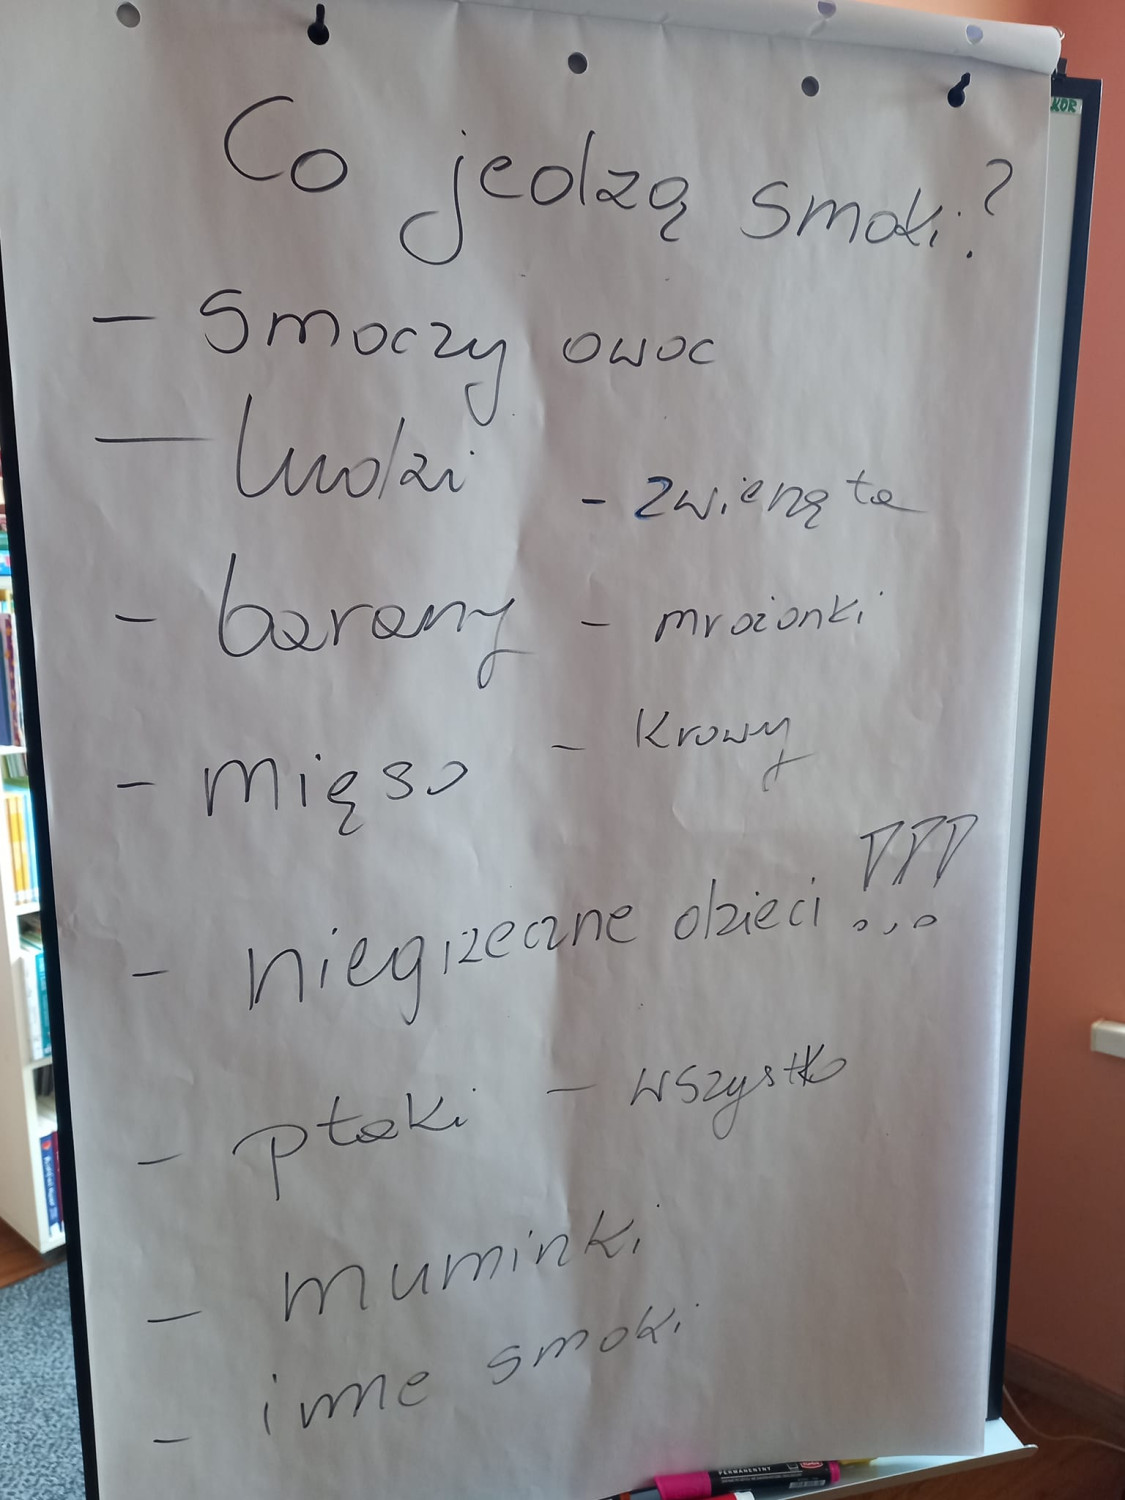 Co jedzą smoki?
- smoczy owoc
- ludzi
- zwierzęta
- barany
- mrożonki
- mięso
- krowy
- niegrzeczne dzieci !!!
- ptaki
- wszystko
- muminki
- inne smoki
KOR
PERMANENTNY